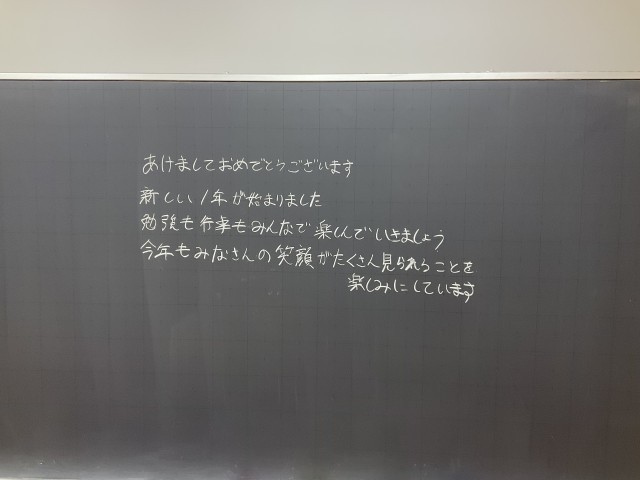 あけましておめでとうございます
新しい1年が始まりました
勉強も行事もみんなで楽しんでいきましょう
今年もみなさんの笑顔がたくさん見られることを
楽しみにしています